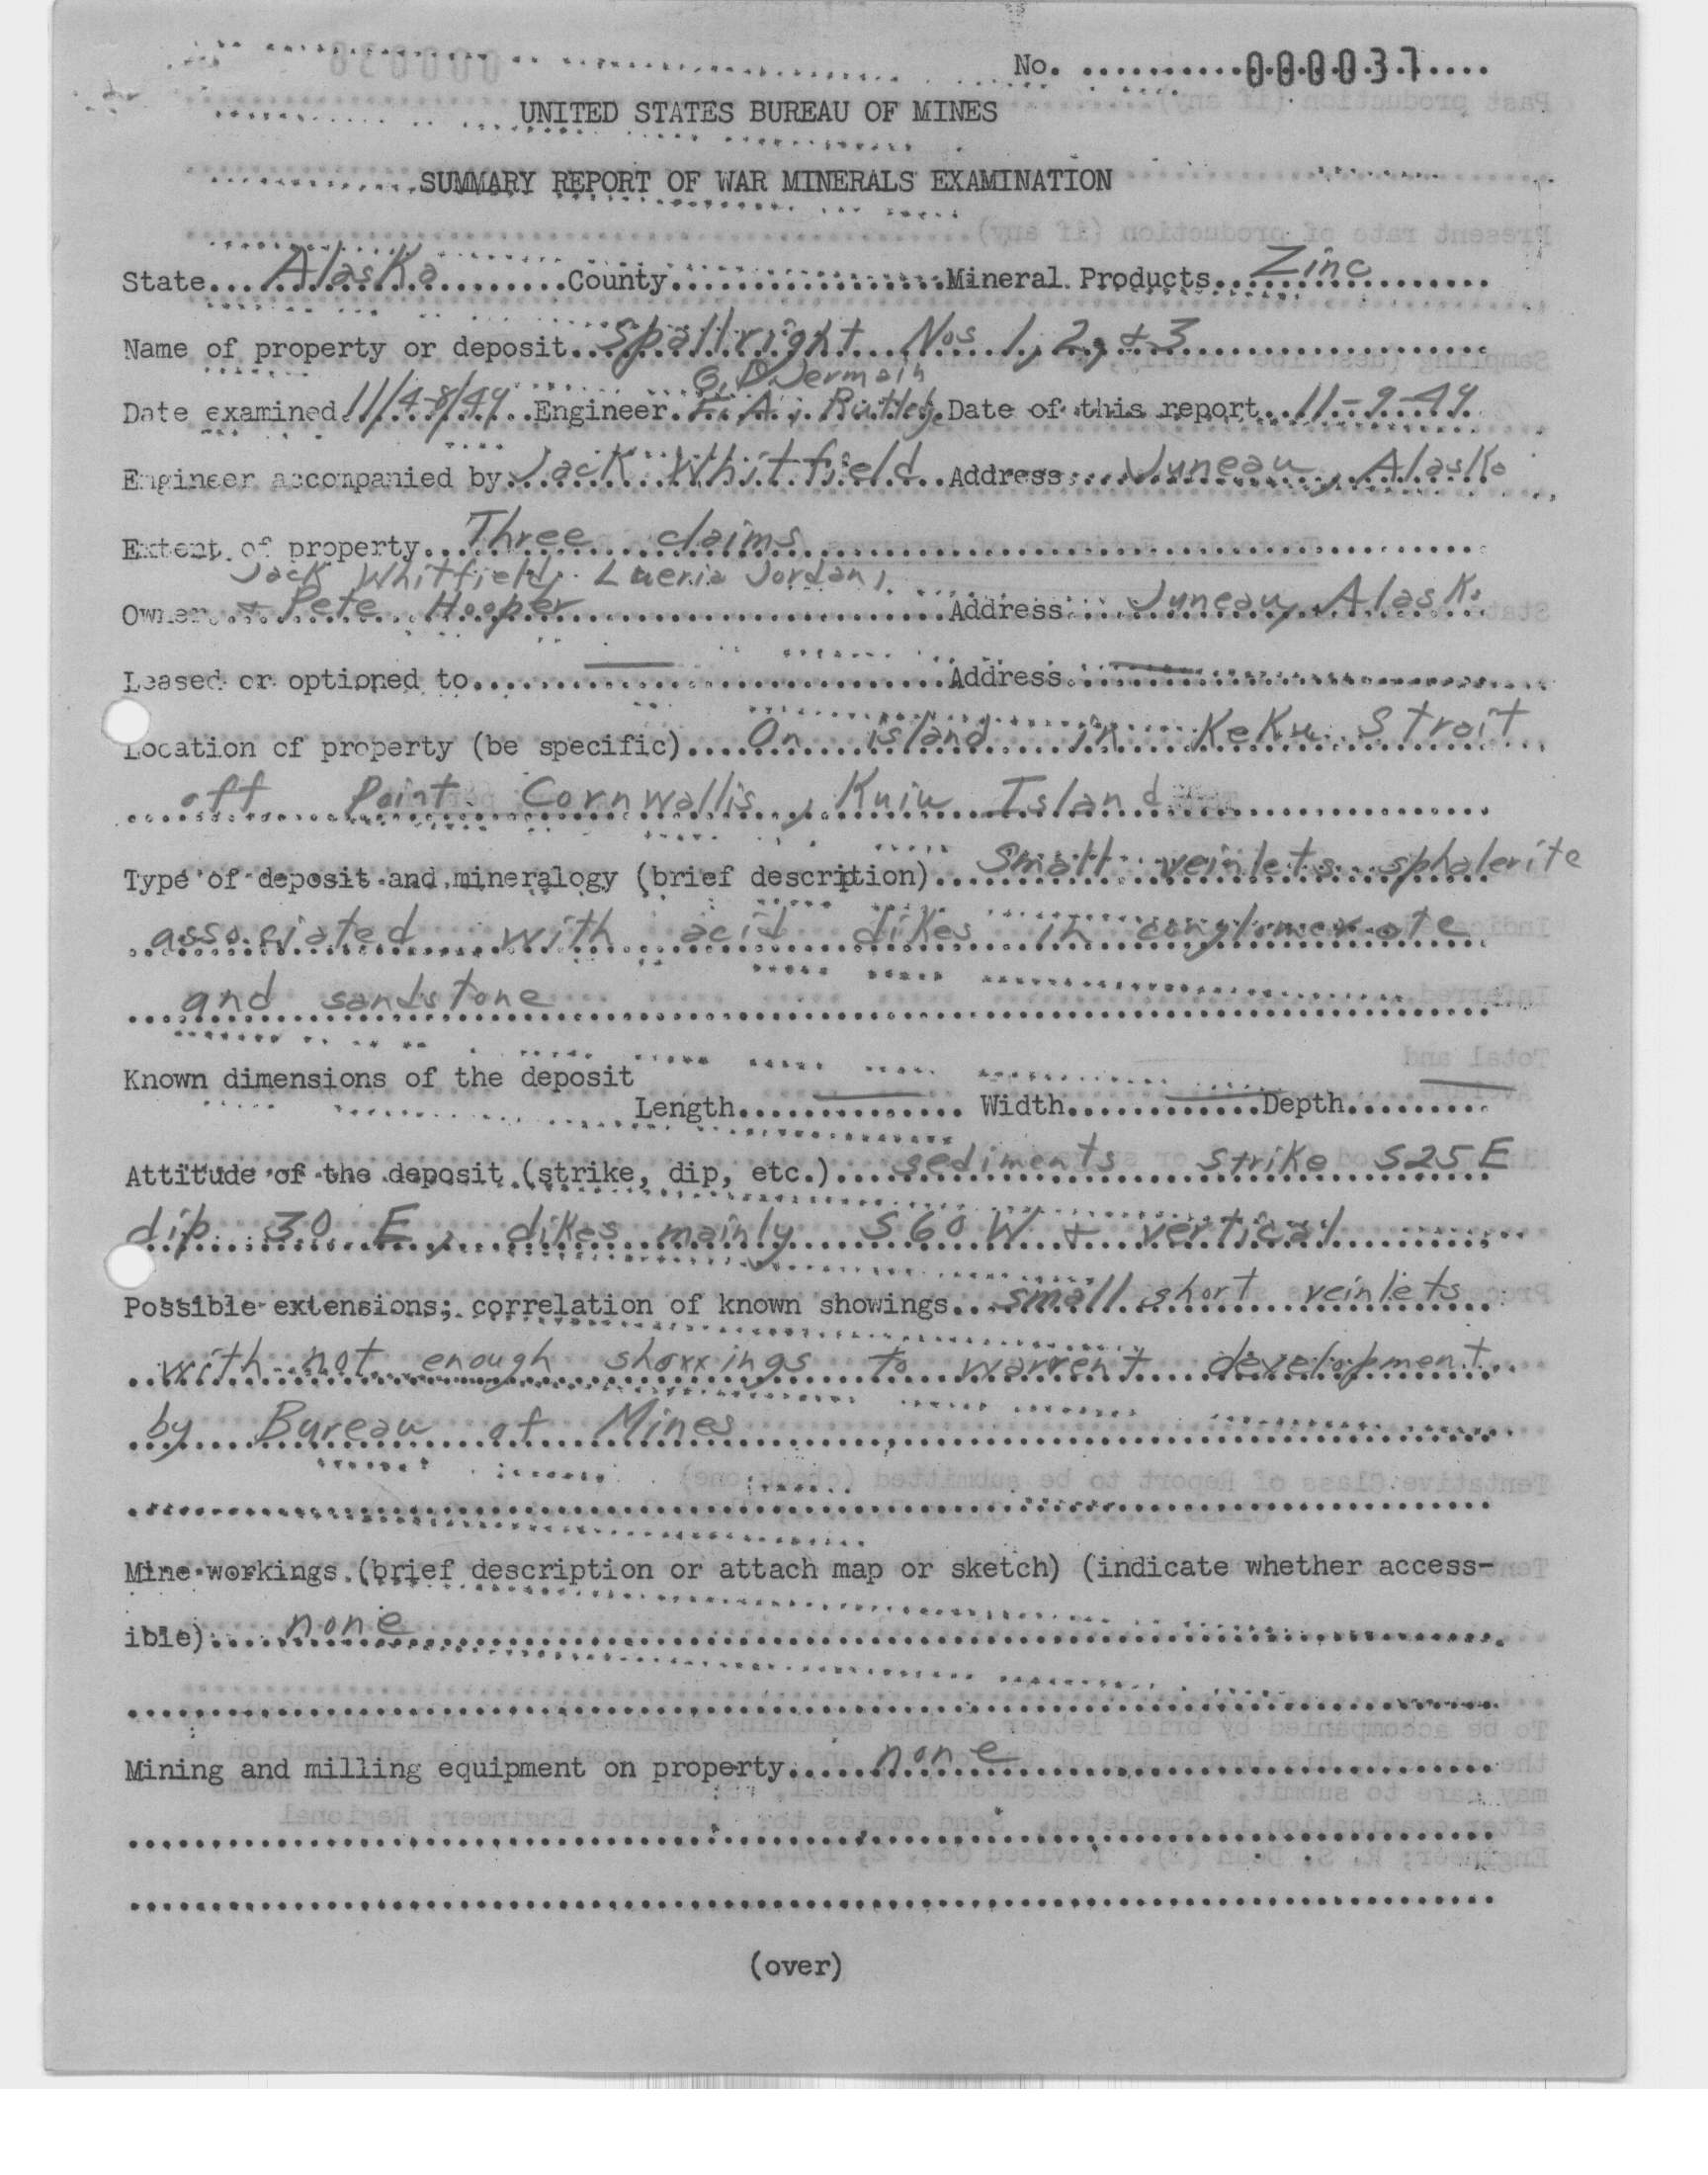 No. 000037
UNITED STATES BUREAU OF MINES
SUMMARY REPORT OF WAR MINERALS EXAMINATION
State Alaska County Mineral Products Zinc
Name of property or deposit Spallright Nos 1, 2, & 3
G. D. Jermain
Date examined 11/4-8/49 Engineer F. A. Rutledge Date of this report 11-9-49
Engineer accompanied by Jack Whitfield Address Juneau, Alaska
Extent of property Three claims
Jack Whitfield, Jordan,
Owner & Pete Hooper Address Juneau, Alask.
Leased or optioned to — Address —
Location of property (be specific) On island in Keku Strait
off Point Cornwallis, Kuiu Island
Type of deposit and mineralogy (brief description) Small veinlets sphalerite
associated with acid dikes in conglomerate
and sandstone
Known dimensions of the deposit
Length — Width — Depth —
Attitude of the deposit (strike, dip, etc.) sediments strike S25E
dip 30 E, dikes mainly S60W + vertical
Possible extensions; correlation of known showings small short veinlets
with not enough showings to warrent development
by Bureau of Mines
Mine workings (brief description or attach map or sketch) (indicate whether access-
ible) none
Mining and milling equipment on property none
(over)